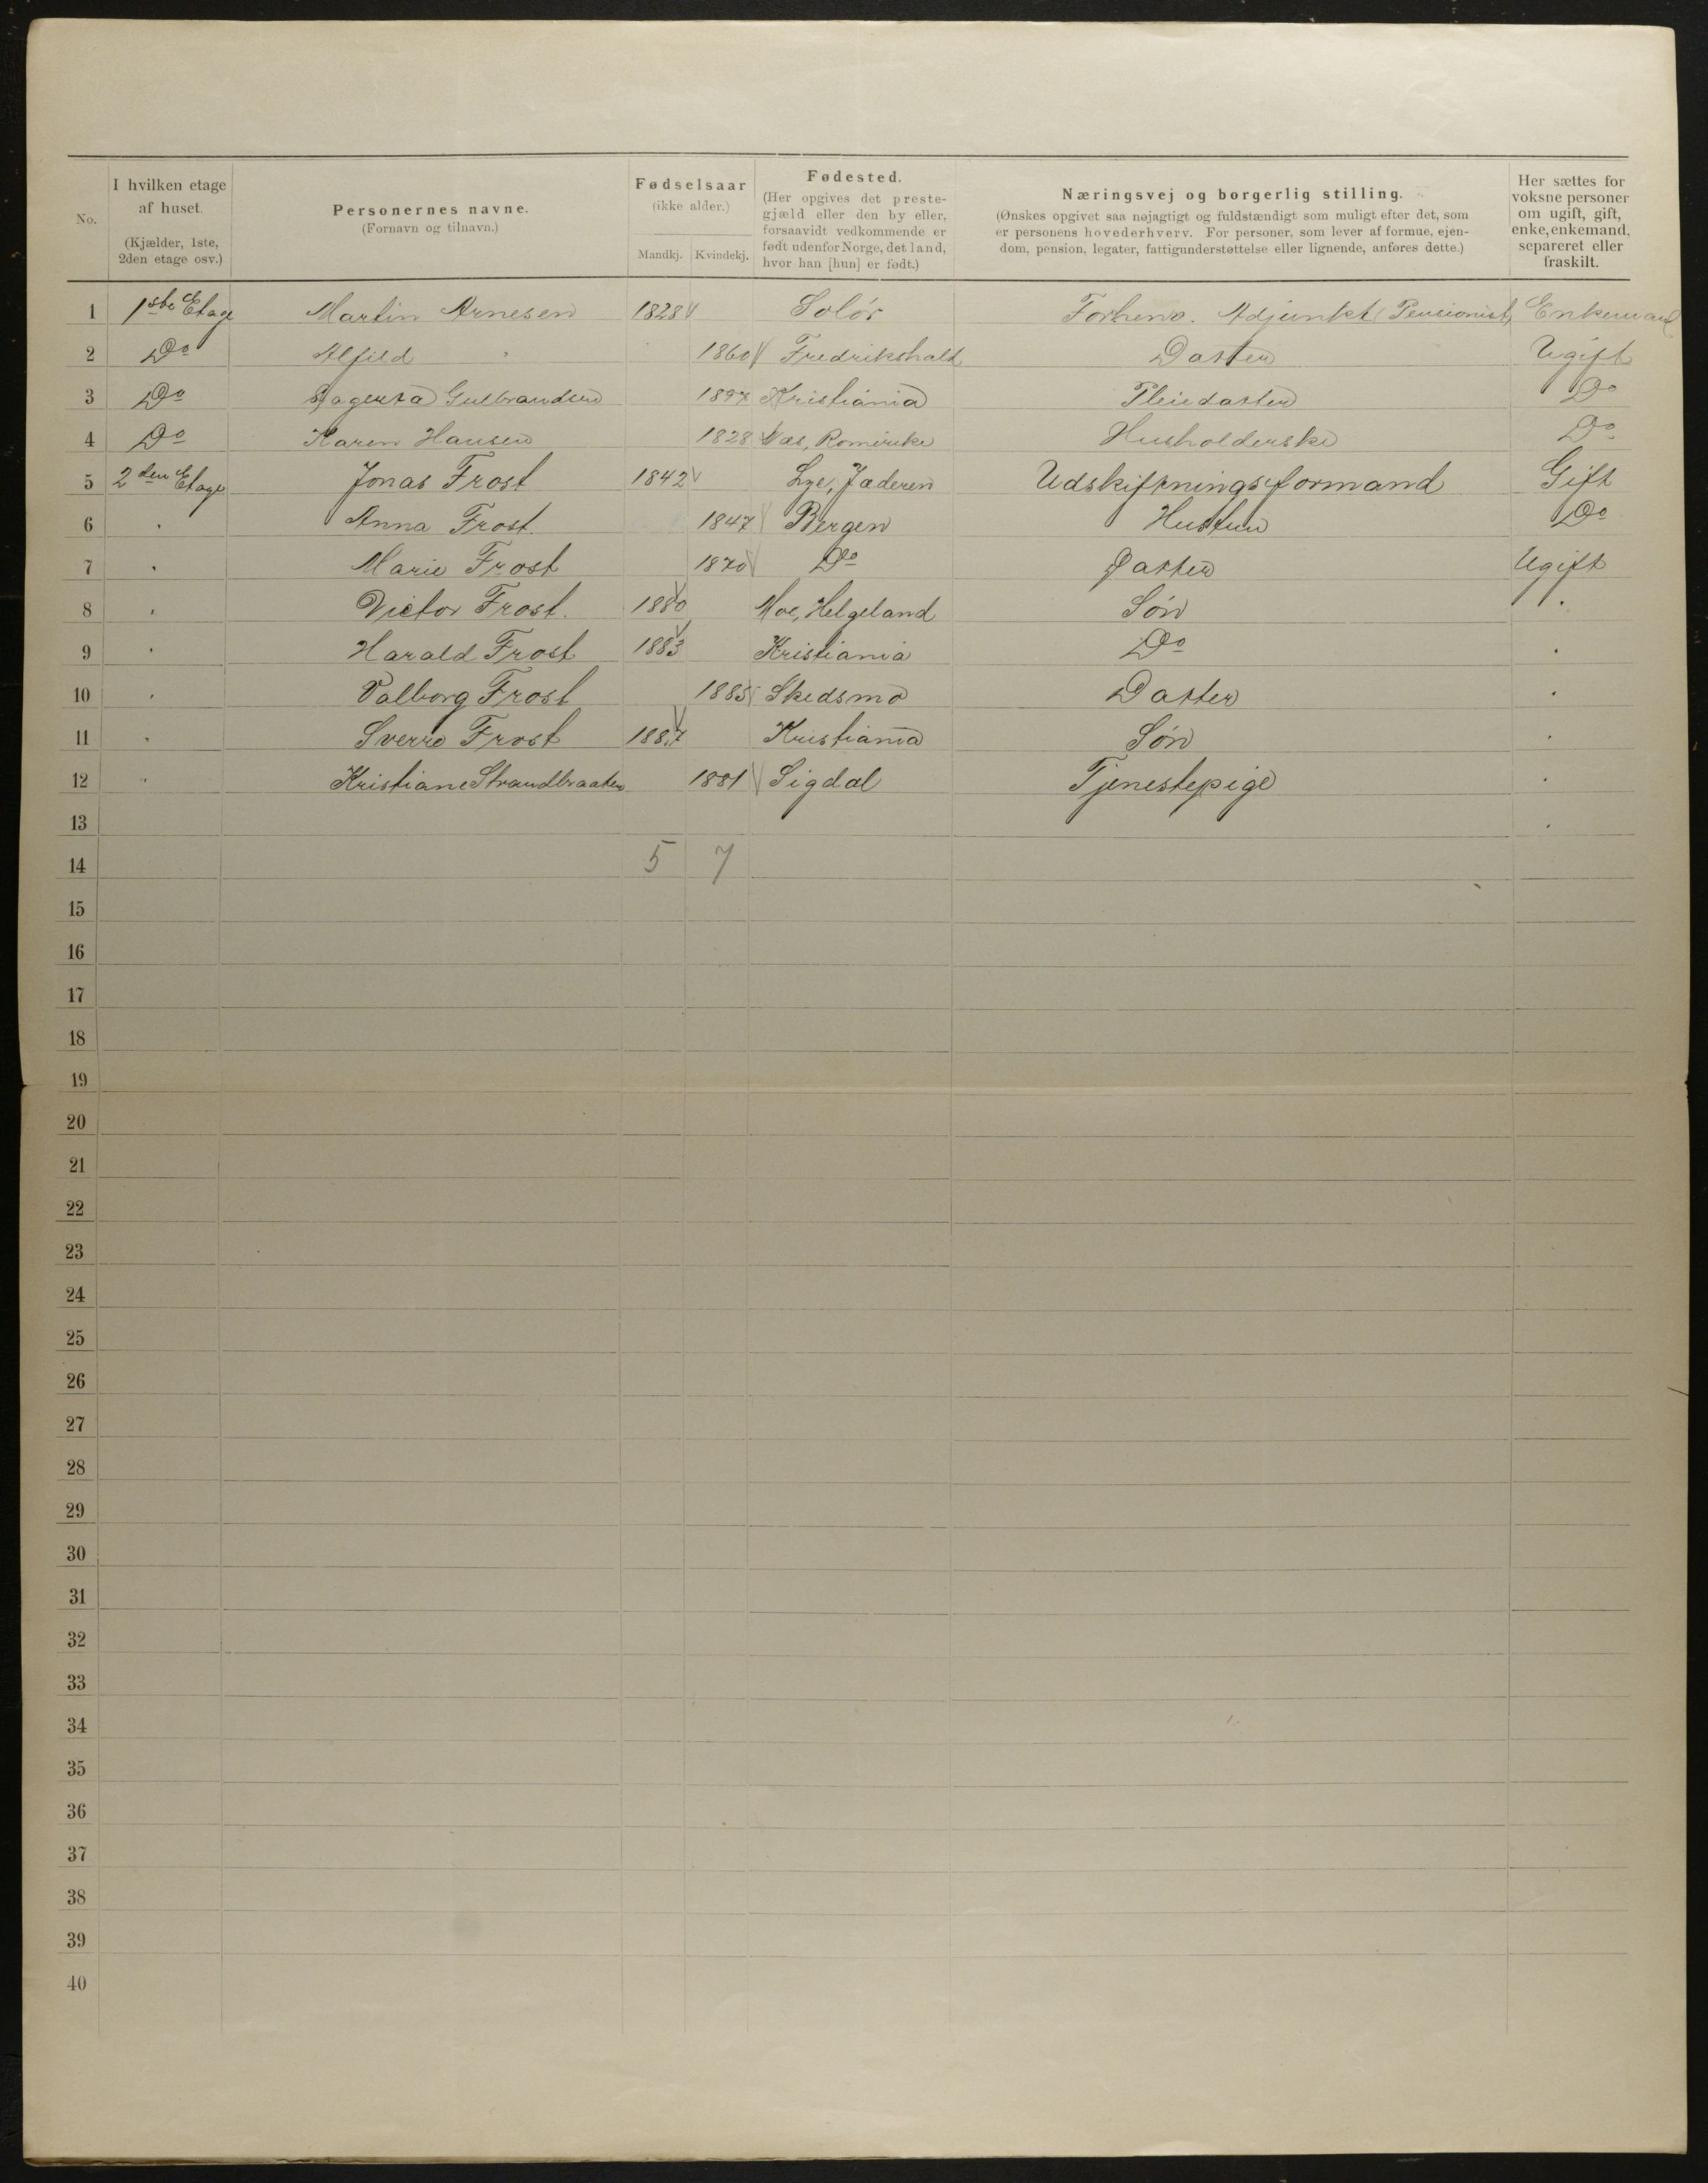 No. | I hvilken etage af huset. (Kjælder, 1ste, 2den etage osv.) | Personernes navne. (Fornavn og tilnavn.) | Fødselsaar (ikke alder.) Mandkj. Kvindekj. | Fødested. (Her opgives det prestegjæld eller den by eller, forsaavidt vedkommende er født udenfor Norge, det land, hvor han [hun] er født.) | Næringsvej og borgerlig stilling. (Ønskes opgivet saa nøjagtigt og fuldstændigt som muligt efter det, som er personens hovederhverv. For personer, som lever af formue, ejendom, pension, legater, fattigunderstøttelse eller lignende, anføres dette.) | Her sættes for voksne personer om ugift, gift, enke, enkemand, separeret eller fraskilt.
1 1ste Etage Martin Arnesen 1828 Solør Forhenv. Adjunkt (Pensionist) Enkemand
2 Do Alfild " 1860 Fredrikshald Datter Ugift
3 Do Gulbrandsen 1897 Kristiania Pleiedatter Do
4 Do Karen Hansen 1828 Næs, Romerike Husholderske Do
5 2den Etage Jonas Frost 1842 Lye, Jæderen Udskiftningsformand Gift
6 " Anna Frost. 1847 Bergen Hustru Do
7 " Marie Frost 1870 Do Datter Ugift
8 " Victor Frost. 1880 Moe, Helgeland Søn "
9 " Harald Frost 1883 Kristiania Do "
10 " Valborg Frost 1885 Skedsmo Datter "
11 " Sverre Frost 1887 Kristiania Søn "
12 " Kristiane Strandbraaten 1881 Sigdal Tjenestepige "
13 "
14 5 7
15
16
17
18
19
20
21
22
23
24
25
26
27
28
29
30
31
32
33
34
35
36
37
38
39
40